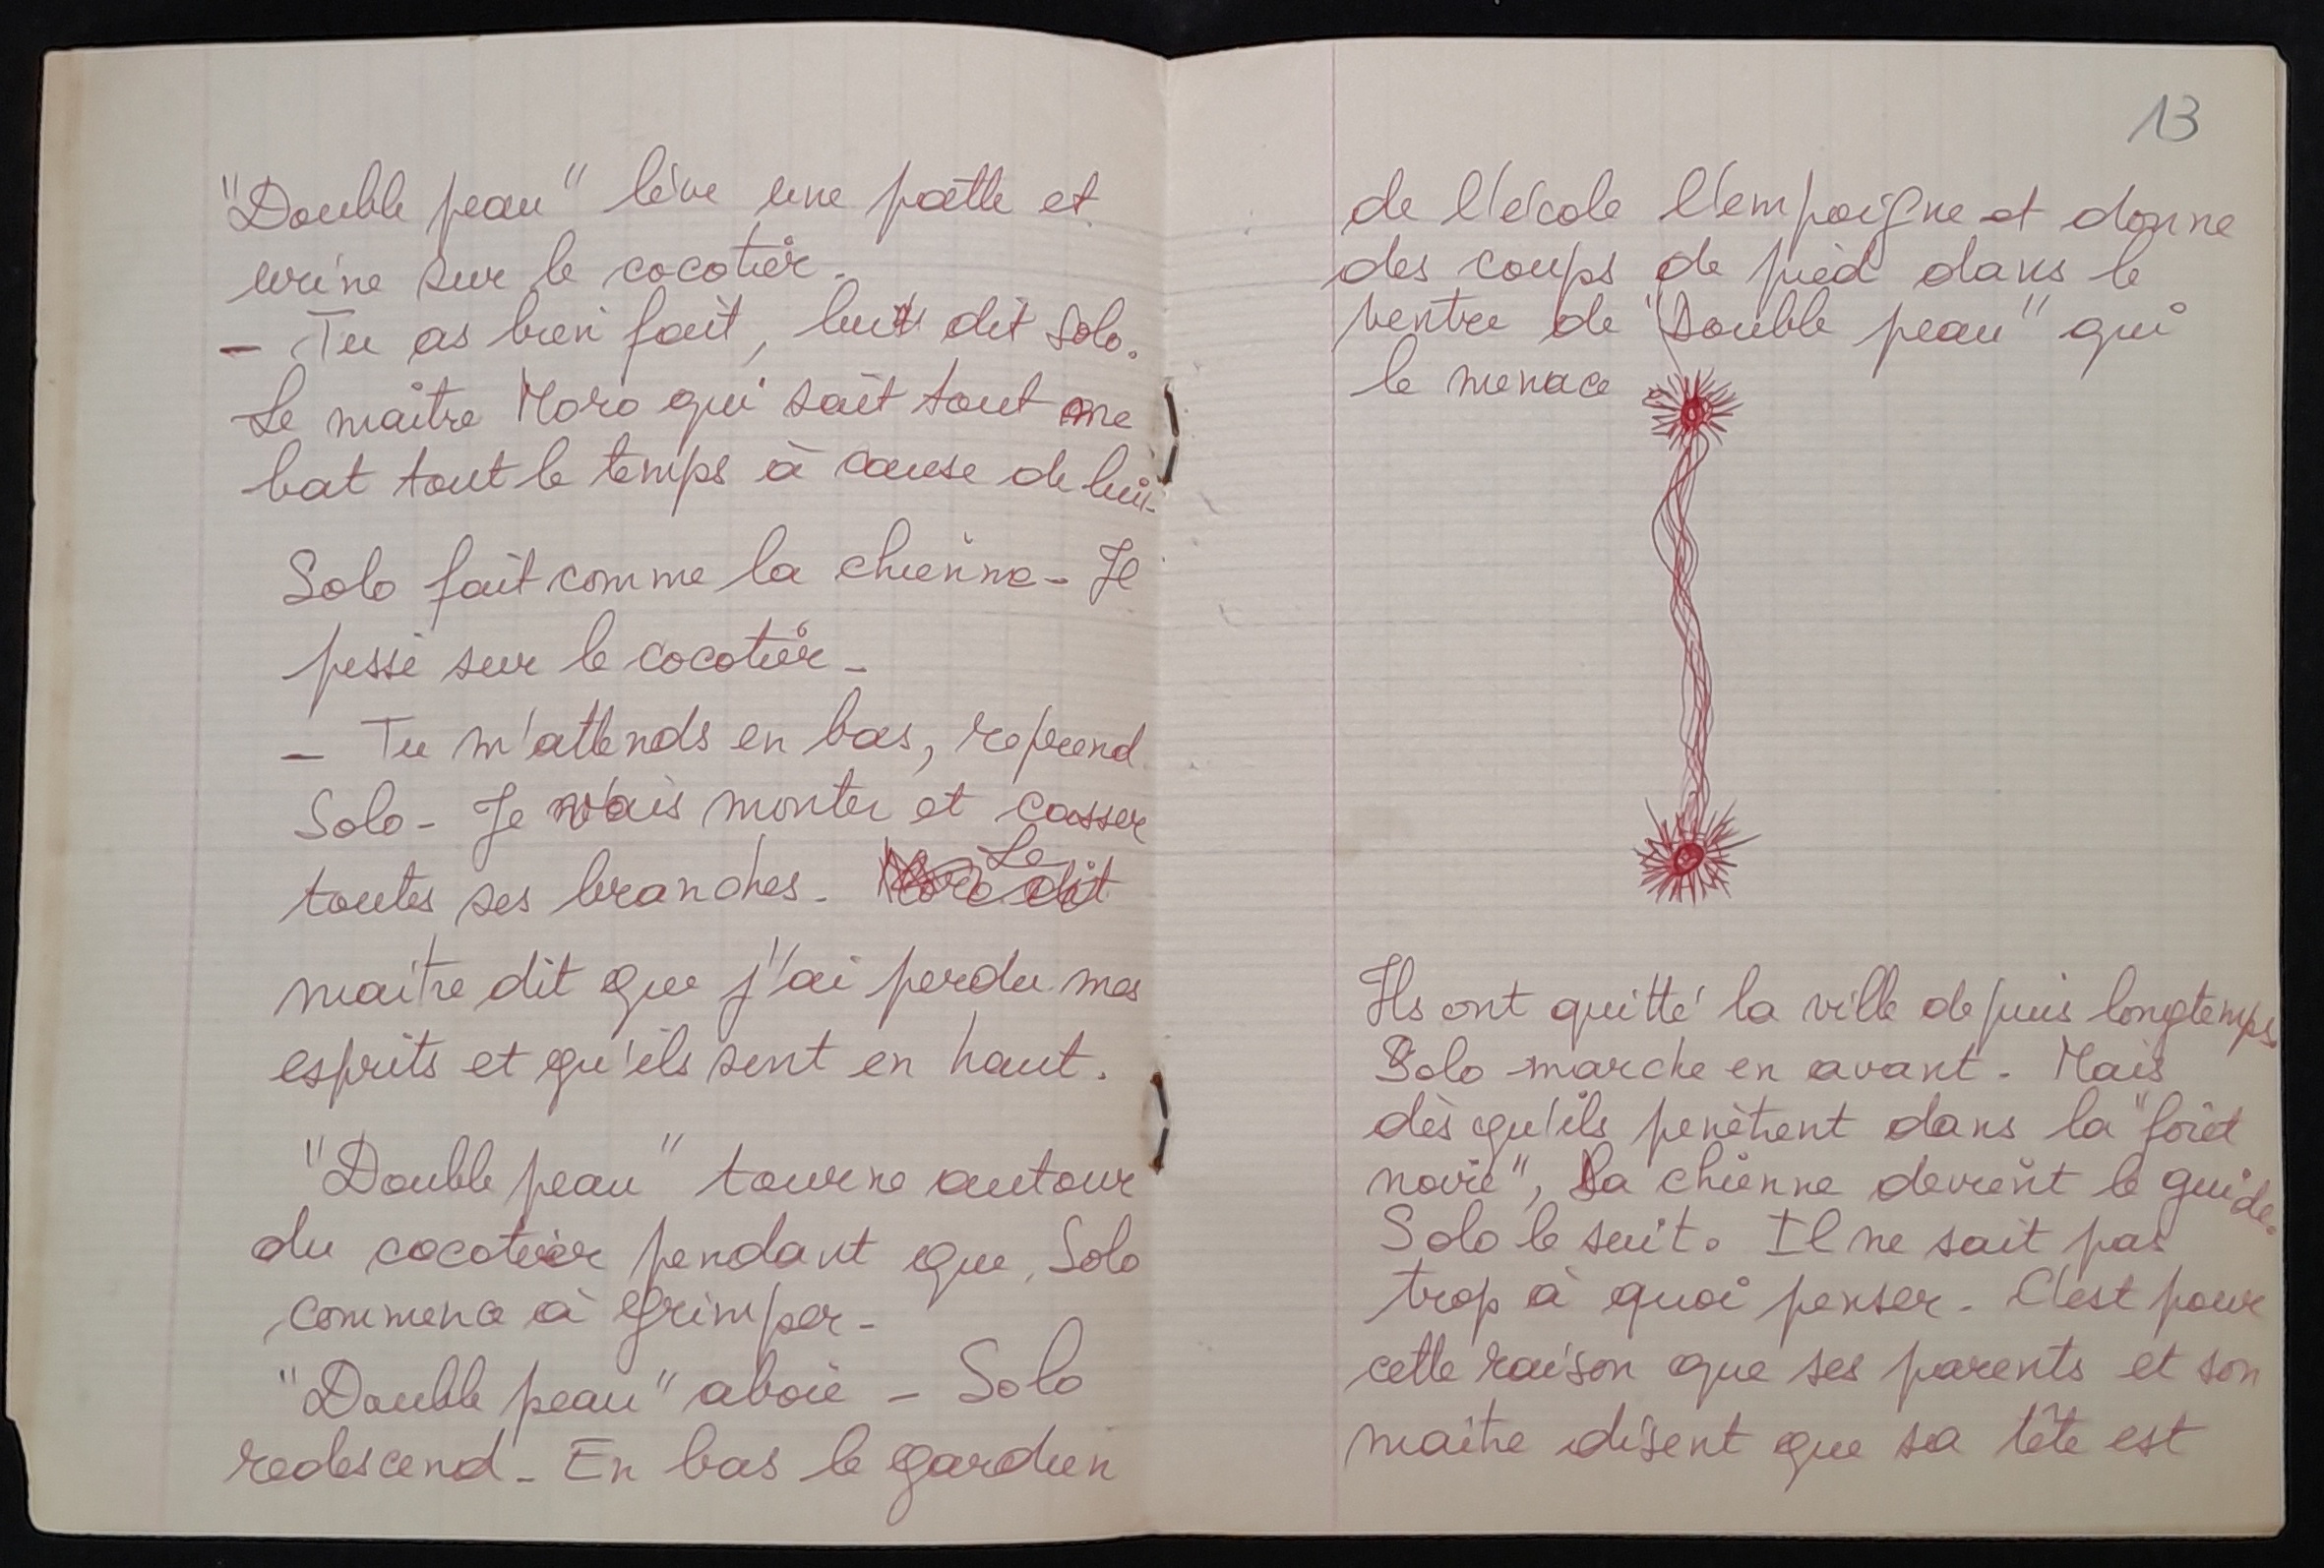 "Double peau" lève une patte et
urine sur le cocotier.
– Tu as bien fait, lui dit Solo.
Le maître Moro qui sait tout me
bat tout le temps à cause de lui.
Solo fait comme la chienne – Il
pisse sur le cocotier –
– Tu m'attends en bas, reprend
Solo – Je vais monter et casser
toutes ses branches. Le
maître dit que j'ai perdu mes
esprits et qu'ils sont en haut.
"Double peau" tourne autour
du cocotier pendant que Solo
commence à grimper –
"Double peau" aboie – Solo
redescend – En bas le gardien
13
de l'école l'empoigne et donne
des coups de pied dans le
ventre de "Double peau" qui
le menace
Ils ont quitté la ville depuis longtemps.
Solo marche en avant – Mais
dès qu'ils penètrent dans la "forêt
noire", la chienne devient le guide.
Solo le suit. Il ne sait pas
trop à quoi penser – C'est pour
cette raison que ses parents et son
maître disent que sa tête est